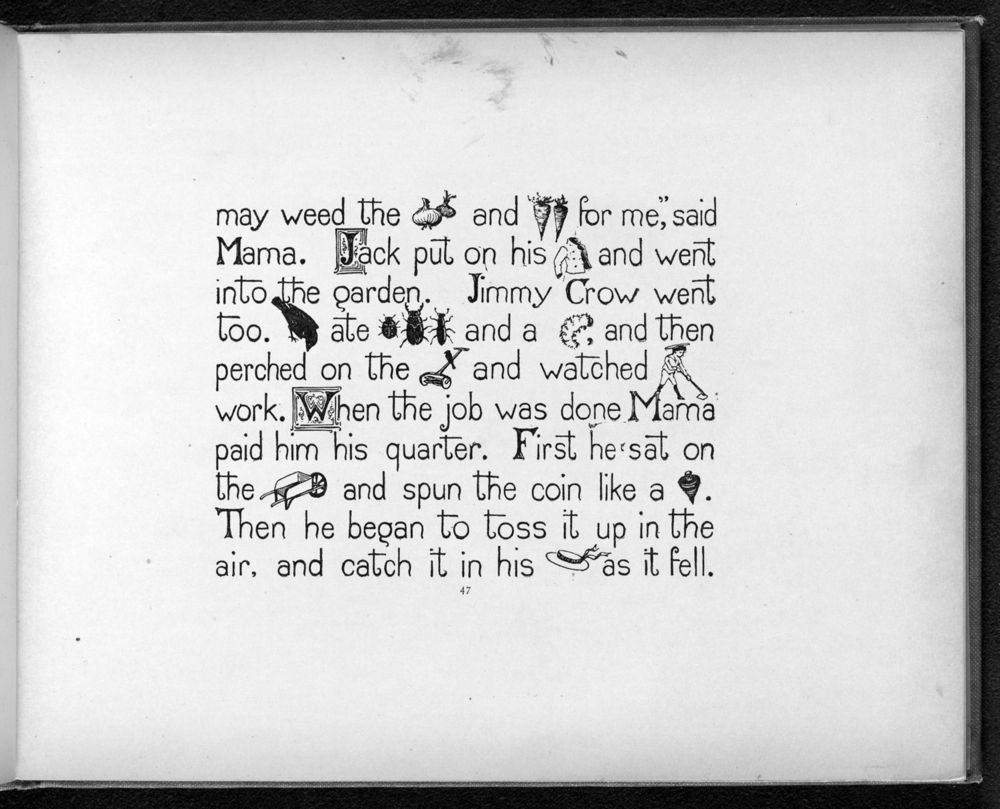 may weed the and for me," said
Mama. Jack put on his and went
into the garden. Jimmy Crow went
too. ate and a , and then
perched on the and watched
work. When the job was done Mama
paid him his quarter. First he sat on
the and spun the coin like a .
Then he began to toss it up in the
air, and catch it in his as it fell.
47